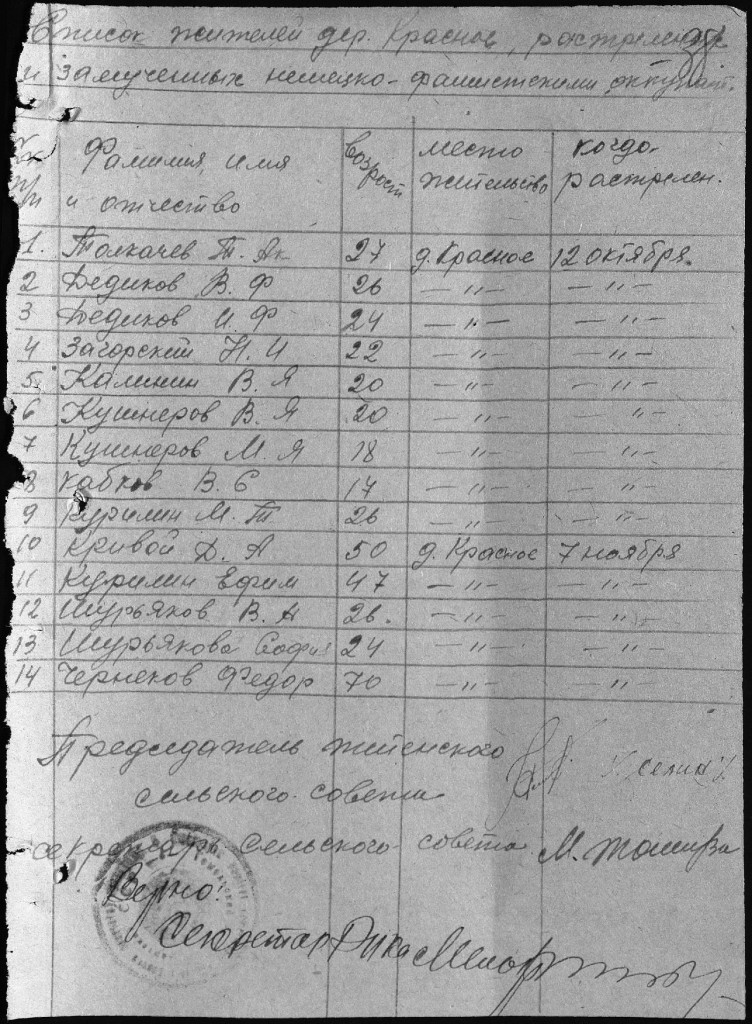 Список жителей дер. Красное, растрелен
и замученных немецко-фашистскими оккупат.
№№ п/п Фамилия, имя и отчество возраст место жительство когда растрелен.
1. Толкачев Т. Ак 27 д. Красное 12 октября.
2 Дедиков В. Ф 26 —"— —"—
3 Дедиков И. Ф 24 —"— —"—
4 Загорский Н. И 22 —"— —"—
5. Калинин В. Я 20 —"— —"—
6 Кушнеров В. Я 20 —"— —"—
7 Кушнеров М. Я 18 —"— —"—
8 Кабков В. С 17 —"— —"—
9 Курилин М. Т 26 —"— —"—
10 Кривой Д. А 50 д. Красное 7 ноября
11 Курилин Ефим 47 —"— —"—
12 Шурьяков В. А 26. —"— —"—
13 Шурьякова София 24 —"— —"—
14 Чернеков Федор 70 —"— —"—
Председатель
сельского совета
секретарь Сельского совета М.
Верно:
Секретар Рика